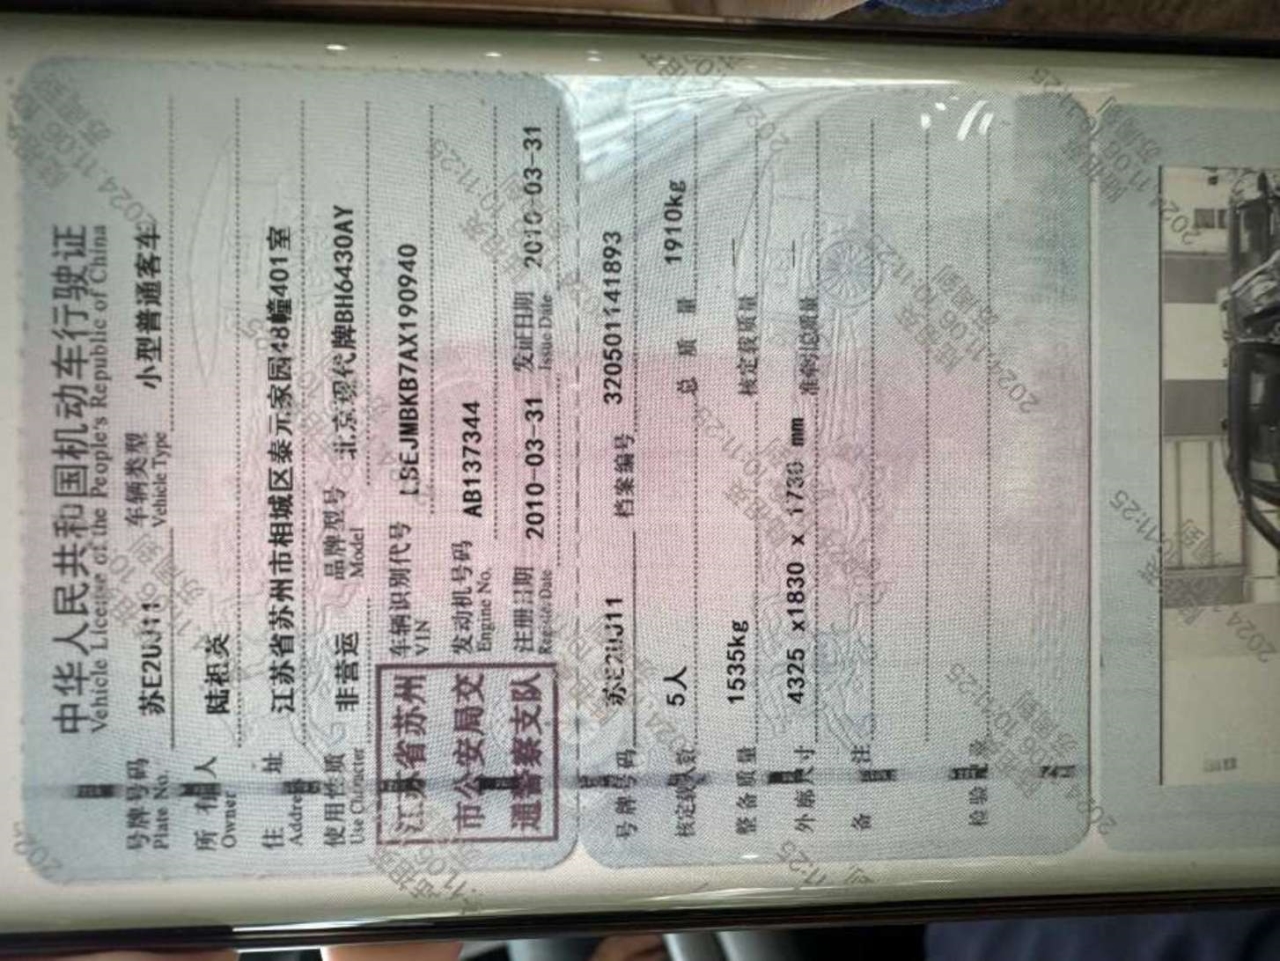 中华人民共和国机动车行驶证
Vehicle License of the People's Republic of China
号牌号码 苏E2UJ11 车辆类型 小型普通客车
Plate No. Vehicle Type
所有人 陆祖英
Owner
住址 江苏省苏州市相城区泰元家园48幢401室
Address
使用性质 非营运 品牌型号 北京现代牌BH6430AY
Use Character Model
江苏省苏州
市公安局交
通警察支队
车辆识别代号 LBEJMBKB7AX190940
VIN
发动机号码 AB137344
Engine No.
注册日期 2010-03-31 发证日期 2010-03-31
Register Date Issue Date
号牌号码 苏E2UJ11 档案编号 320501141893
核定载人数 5人 总质量 1910kg
整备质量 1535kg 核定载质量 —
外廓尺寸 4325 x1830 x 1730 mm 准牵引总质量 —
备注
检验记录